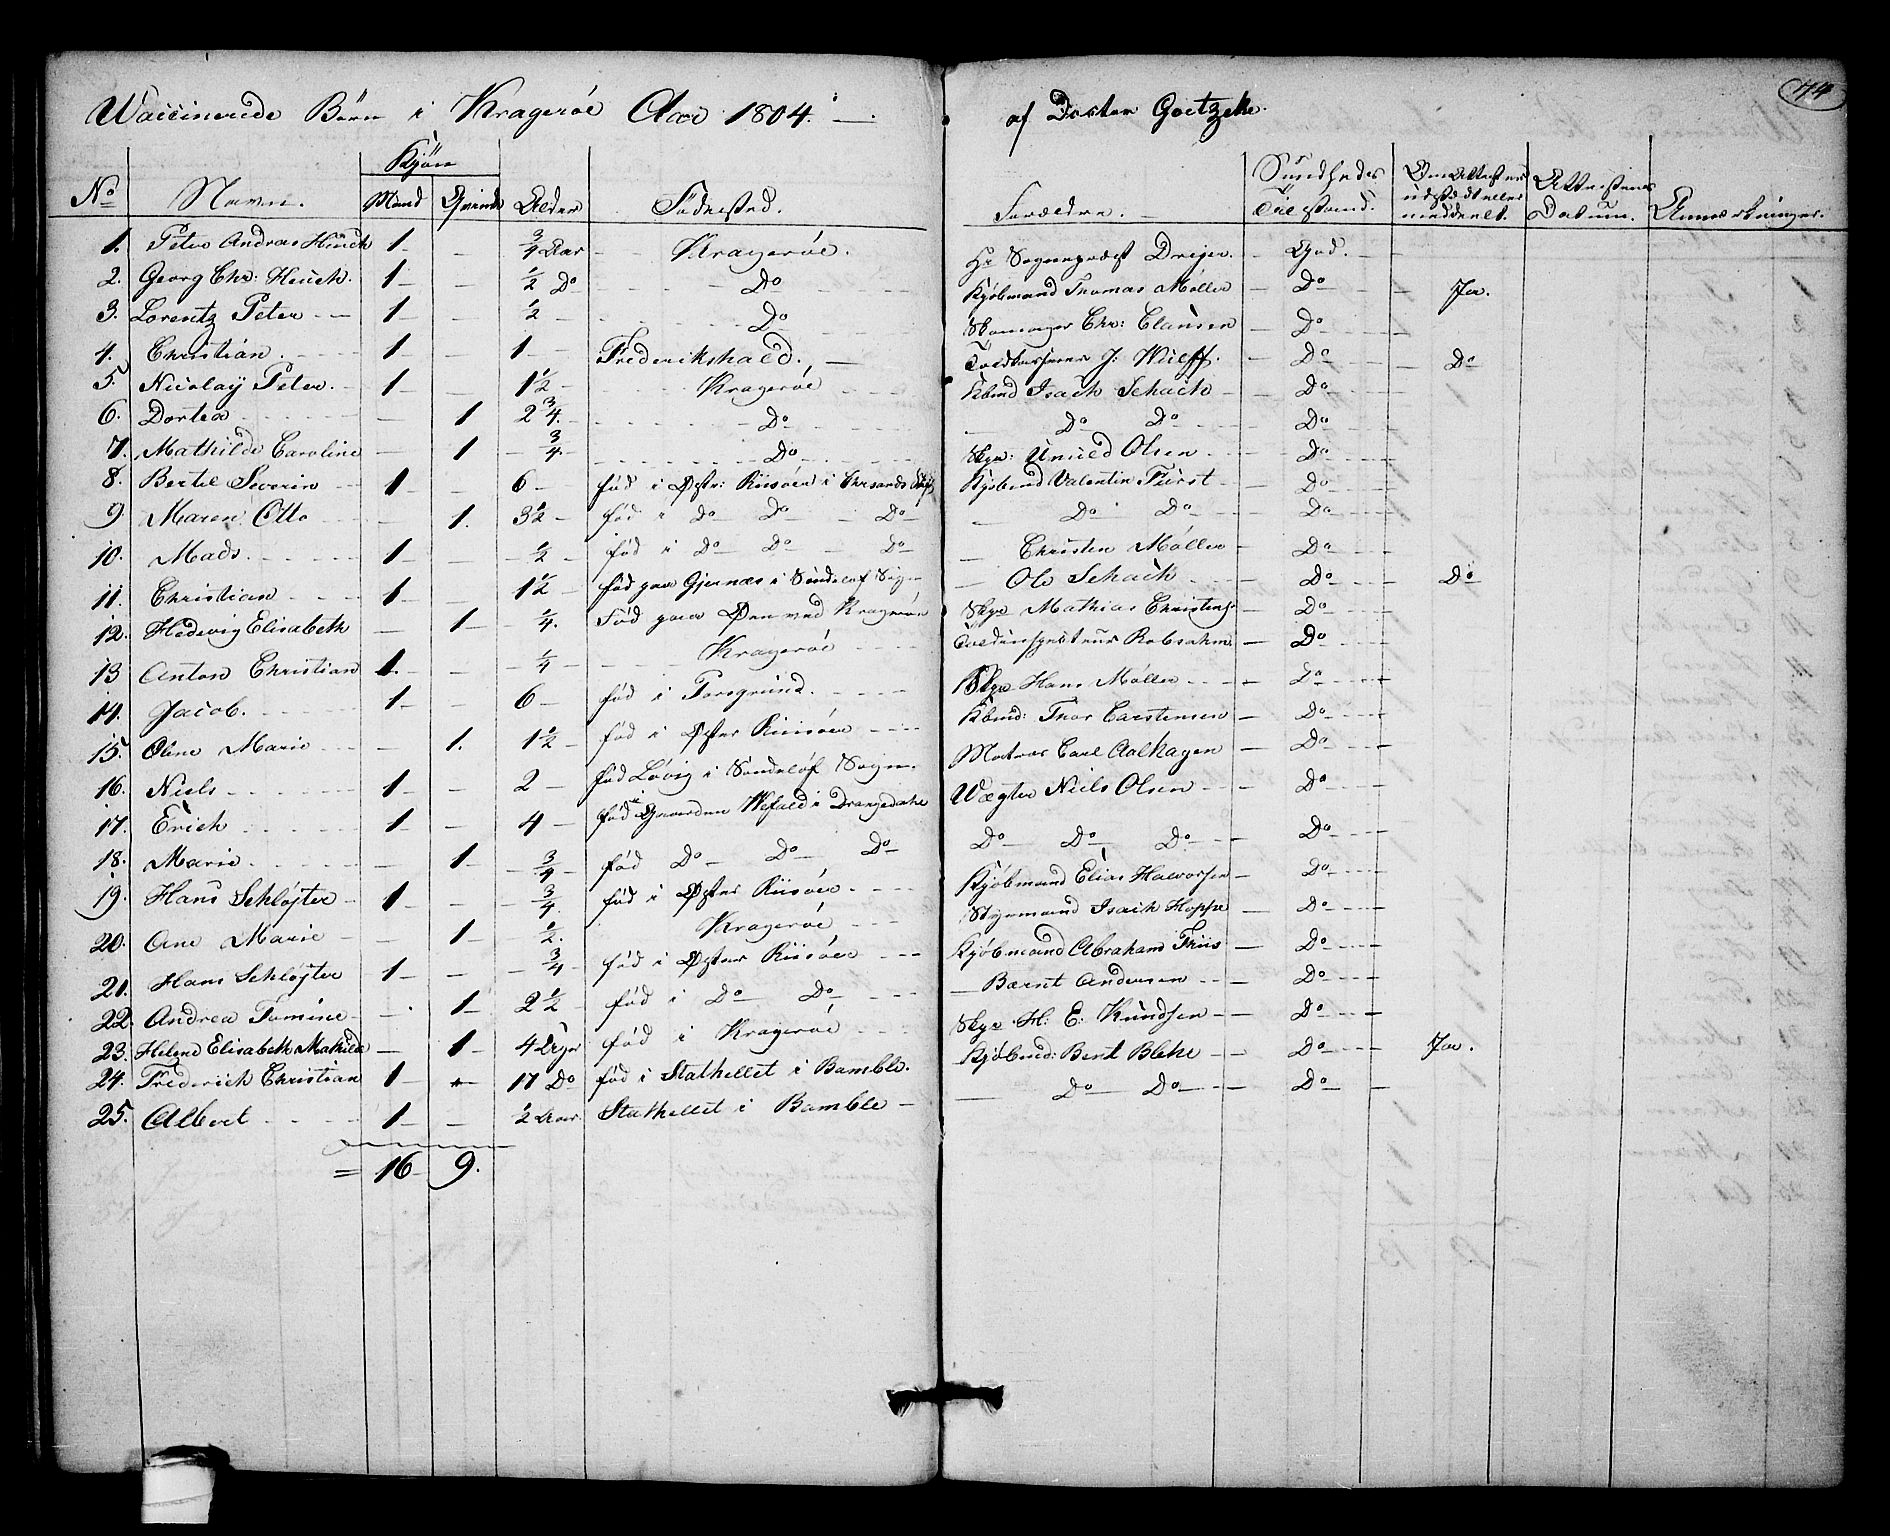 44
Waccinerede Börn i Kragerøe Aar 1804. af Docter Goetzche.
No Navn. Kjön Mand Qvinde Alder Födested. Forældre. Sundheds Tilstand. Om Attester udstædt eller meddeelt. Attestens Datum. Anmærkninger.
1. Peter Andreas Heuch 1 - 3/4 Aar Kragerøe. Hr Sogneprest Dreyer. God.
2. Georg Chr: Heuch. 1 - 1/2 Do Do Kjöbmand Thomas Möller Do Ja.
3. Lorentz Peter 1 - 1/2 Do Skomager Chr: Clausen Do
4. Christian. 1 - 1 Frederikshald. Toldkasserer J: Wulff. Do Do
5. Nicolaÿ Peter. 1 - 1 1/2 Kragerøe Kbmd Isach Schack Do
6. Dortea - 1 2 3/4. Do Do Do Do
7. Mathilde Caroline - 1 3/4. Do Skpr: Olsen Do
8. Bertel Severin 1 - 6 fød i Øster: Riisöer i Chrsands Kjöbmd Valentin Fürst Do
9. Maren Otto - 1. 3 1/2 fød i Do Do Do Do Do Do
10. Mads. 1 - 1/2 fød i Do Do Do Christen Möller Do
11. Christian 1 - 1 1/2 fød paa Gjernæs i Söndelöf Sogn Ole Schack Do Do
12. Hedevig Elisabeth - 1 1/4. Fød paa Øen ved Kragerøe Skpr Mathias Christens: Do
13 Anton Christian 1 - 1/4 Kragerøe Toldinspecteur Robsahm Do
14. Jacob. 1 - 6 fød i Porsgrund. Skpr Hans Möller Do
15. Olene Marie - 1. 1 1/2 fød i Øster Riisöer Kbmd: Thor Carstensen Do
16. Niels 1 - 2 fød Lövig i Söndelöf Sogn. Matros Carl Aalhagen Do
17. Erich 1 - 4 fød i Gaarden Wefald i Drangedahl Wægter Niels Olsen Do
18. Marie - 1 3/4 fød Do Do Do Do Do Do Do
19. Hans Schlöjter 1 - 3/4 fød i Øster Riisöer Kjöbmand Elias Halvorsen Do
20. Ane Marie - 1 1/2. Kragerøe Styrmand Isach Hoppe Do
21. Hans Schlöjter 1 - 3/4 fød i Øster Riisöer Kjöbmand Abraham Friis Do
22. Andrea Tomine - 1 2 1/2 fød i Do Do Bærnt Andersen Do
23. Helene Elisabeth Mathilda - 1 4 Uger fød i Kragerøe Skpr H: E: Knudsen Do
24. Frederich Christian 1 - 17 Do fød i Stathellet i Bamble. Kjöbmd: Bent Blehe Do Ja.
25. Albert 1 - 1/2 Aar Stathellet i Bamble Do Do Do
= 16 9.